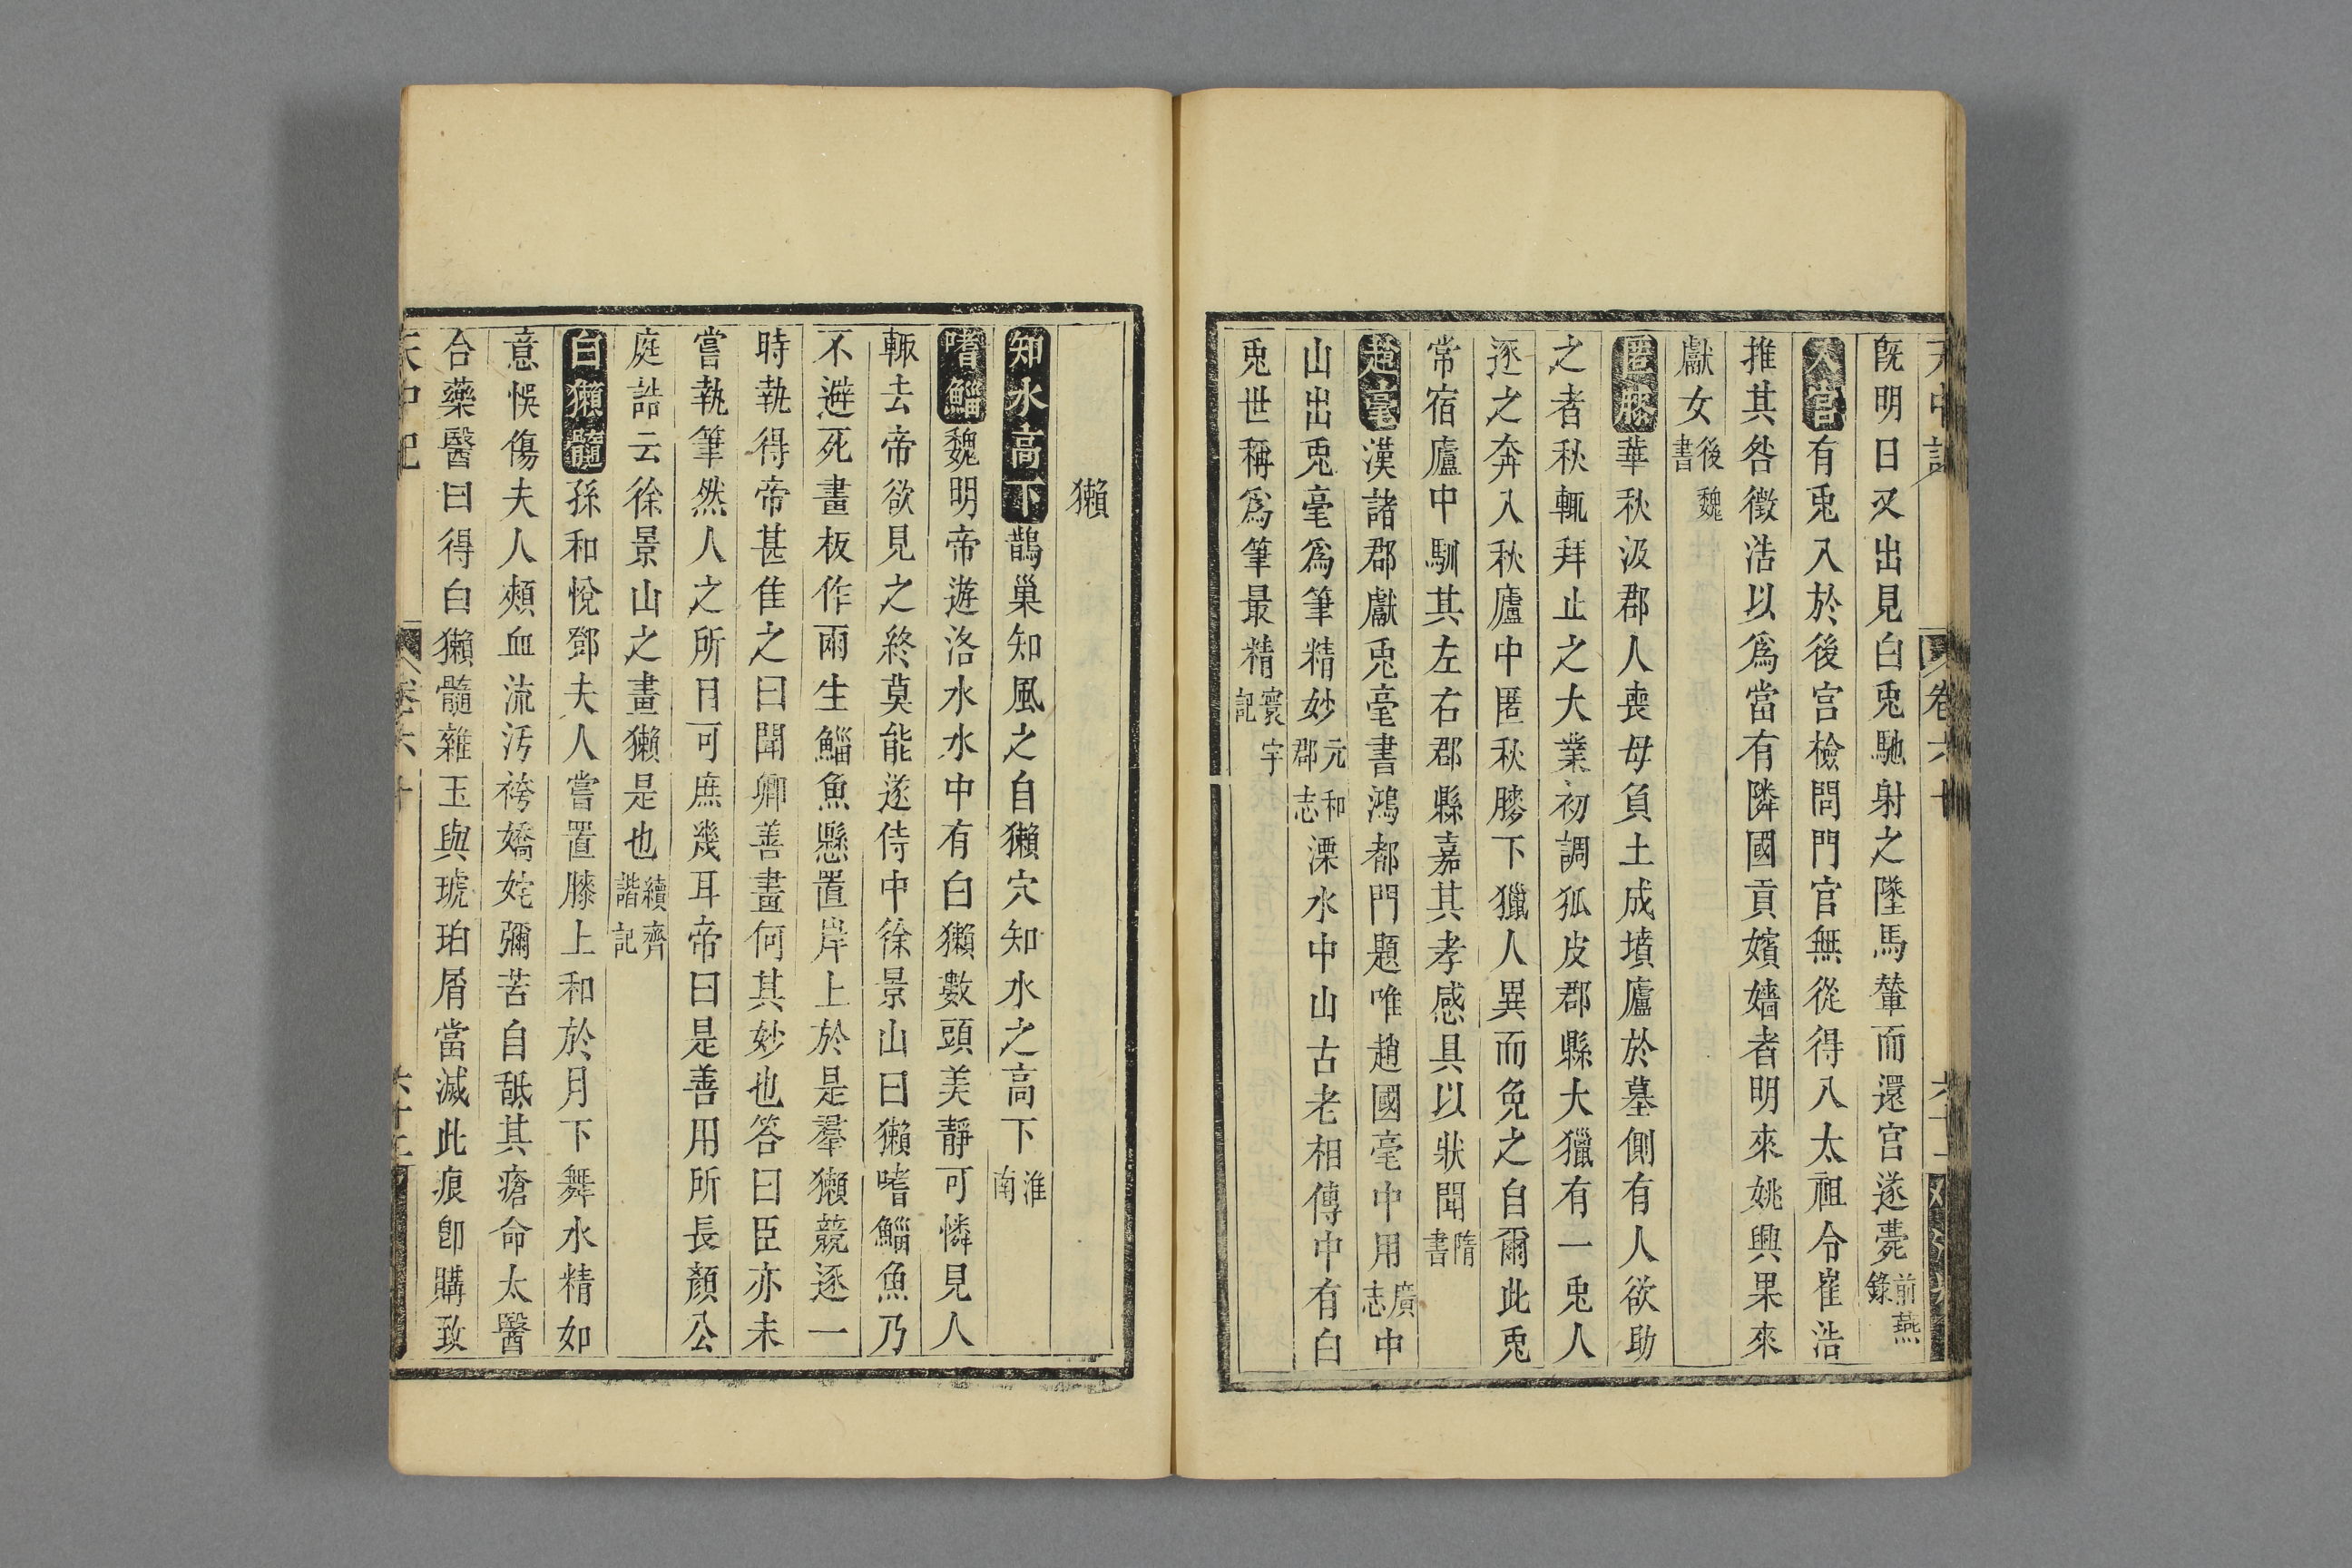 既明日又出見白兎馳射之墜馬輦而還宫遂薨前燕錄
入宮有兎入於後宫檢問門官無從得入太祖令崔浩
推其咎徵浩以爲當有隣國貢嬪嬙者明來姚興果來
獻女後魏書
匿膝華秋汲郡人喪母負土成墳廬於墓側有人欲助
之者秋輒拜止之大業初調狐皮郡縣大獵有一兎人
逐之奔入秋廬中匿秋膝下獵人異而免之自爾此兎
常宿廬中馴其左右郡縣嘉其孝感具以狀聞隋書
趙毫漢諸郡獻兎毫書鴻都門題唯趙國毫中用廣志中
山出兎毫爲筆精妙元和郡志溧水中山古老相傳中有白
兎世稱爲筆最精寰宇記
獺
知水高下鵲巢知風之自獺穴知水之高下淮南
嗜鯔魏明帝遊洛水水中有白獺數頭美靜可憐見人
輒去帝欲見之終莫能遂侍中徐景山曰獺嗜鯔魚乃
不避死畫板作兩生鯔魚懸置岸上於是羣獺競逐一
時執得帝甚佳之曰聞卿善畫何其妙也答曰臣亦未
嘗執筆然人之所目可庶幾耳帝曰是善用所長顏公
庭誥云徐景山之畫獺是也續齊諧記
白獺髓孫和悅鄧夫人嘗置膝上和於月下舞水精如
意悞傷夫人頰血流汚袴嬌姹彌苦自舐其瘡命太醫
合藥醫曰得白獺髓雜玉與琥珀屑當滅此痕卽購致